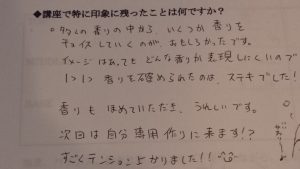 ◆講座で特に印象に残ったことは何ですか？
。多くの香りの中から、いくつか香りを
チョイスしていくのが、おもしろかったです。
イメージはあってもどんな香りか表現しにくいので
1つ1つ香りを確められたのは、ステキでした！
香りもほめていただき、うれしいです。
次回は自分専用作りに来ます！？
すごくテンション上がりました！！